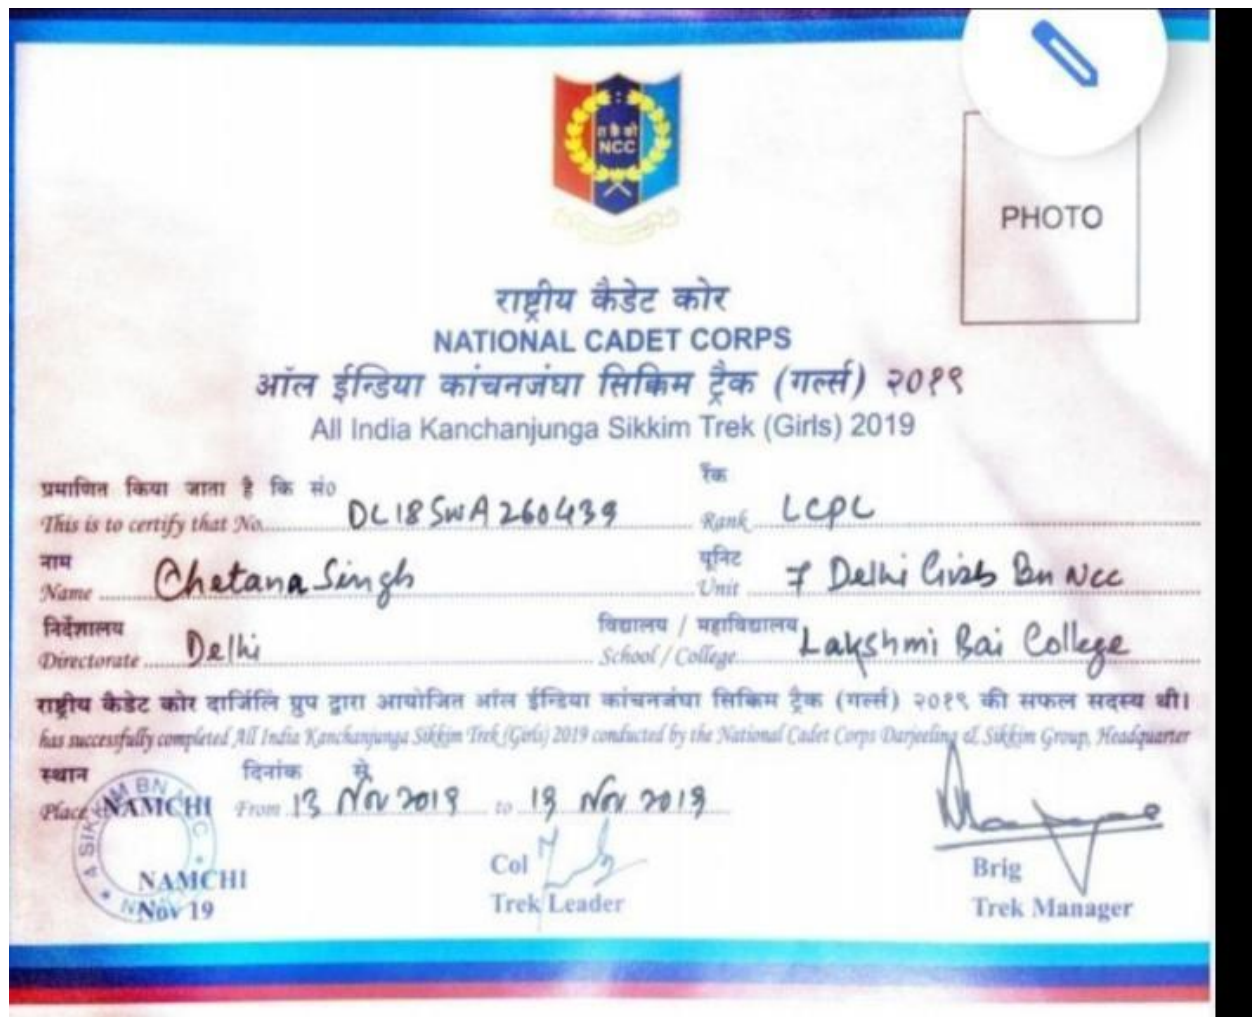 रा कै को
NCC
PHOTO
राष्ट्रीय कैडेट कोर
NATIONAL CADET CORPS
ऑल ईन्डिया कांचनजंघा सिकिम ट्रैक (गर्ल्स) २०१९
All India Kanchanjunga Sikkim Trek (Girls) 2019
प्रमाणित किया जाता है कि सं० रैंक
This is to certify that No. DL18SWA260439 Rank LCPL
नाम यूनिट
Name Chetana Singh Unit 7 Delhi Girls Bn NCC
निर्देशालय विद्यालय / महाविद्यालय
Directorate Delhi School / College Lakshmi Bai College
राष्ट्रीय कैडेट कोर दार्जिलिं ग्रुप द्वारा आयोजित ऑल ईन्डिया कांचनजंघा सिकिम ट्रैक (गर्ल्स) २०१९ की सफल सदस्य थी।
has successfully completed All India Kanchanjunga Sikkim Trek (Girls) 2019 conducted by the National Cadet Corps Darjeeling & Sikkim Group, Headquarter
स्थान दिनांक से
Place NAMCHI From 13 Nov 2019 to 19 Nov 2019
SIKKIM BN NCC
Col Brig
NAMCHI Trek Leader Trek Manager
Nov 19